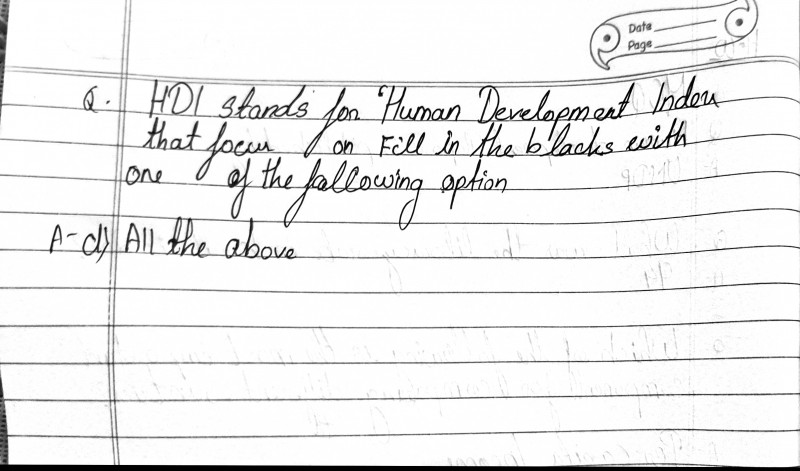 Date
Page
Q. HDI stands for "Human Development Index
that focus on Fill in the blacks with
one of the following option
A-d) All the above